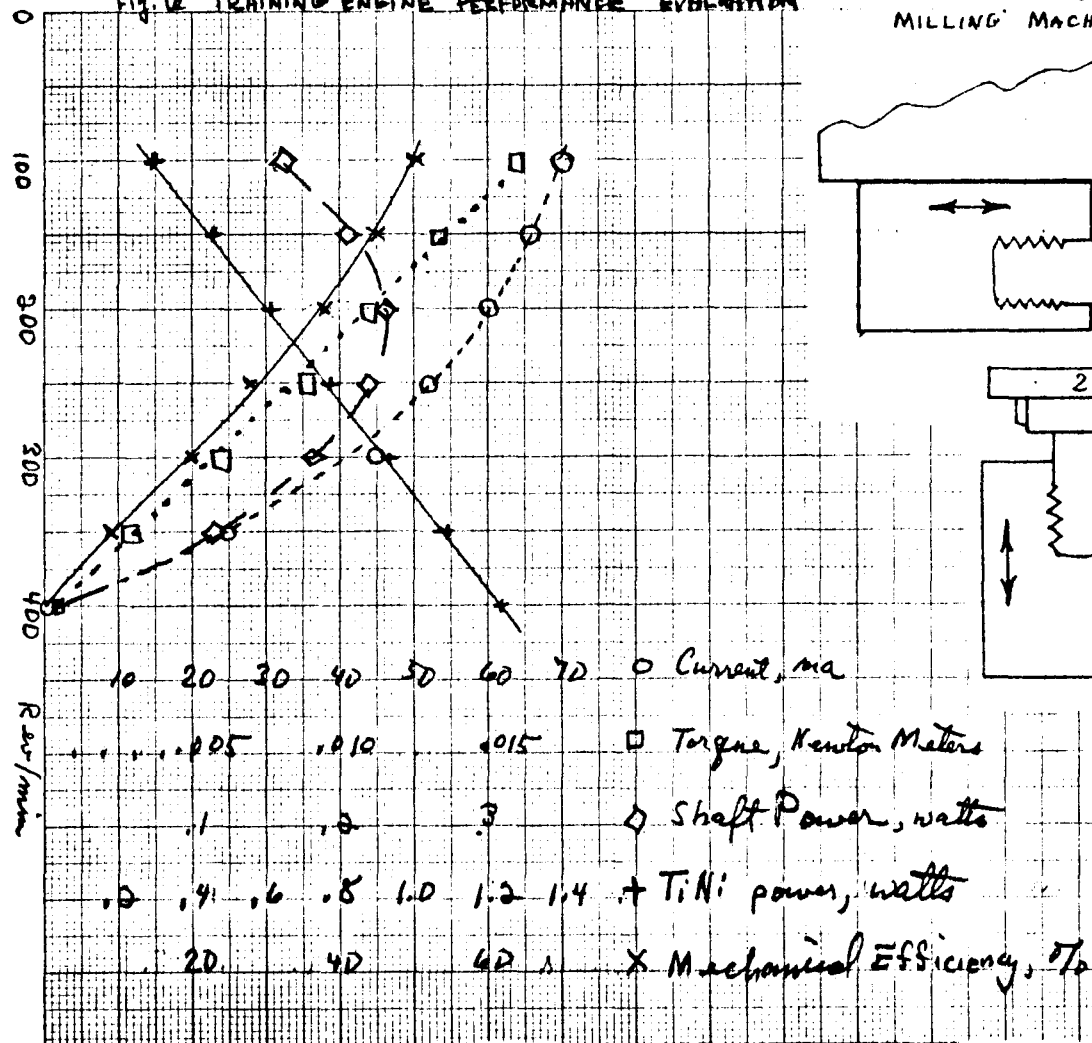 Fig. 12 TRAINING ENGINE PERFORMANCE EVALUATION
MILLING MACH
0
100
200
300
400
Rev/min
2
10 20 30 40 50 60 70 O Current, ma
.005 .010 .015 □ Torque, Newton Meters
.1 .2 .3 ◇ Shaft Power, watts
.2 .4 .6 .8 1.0 1.2 1.4 + TiNi power, watts
20 40 60 X Mechanical Efficiency, %